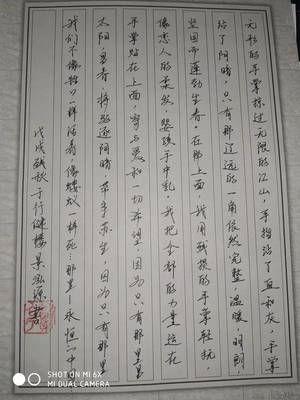 无形的手掌掠过无限的江山，手指沾了血和灰，手掌
沾了阴暗，只有那辽远的一角依然完整，温暖，明朗
坚固而蓬勃生春。在那上面，我用残损的手掌轻抚，
像恋人的柔发，婴孩手中乳。我把全部的力量运在
手掌贴在上面，寄与爱和一切希望，因为只有那里是
太阳，是春，将驱逐阴暗，带来苏生，因为只有那里
我们不像牲口一样活着，像蝼蚁一样死…那里——永恒的中
戊戌残秋于行健楼景泓源书
SHOT ON MI 6X
MI DUAL CAMERA